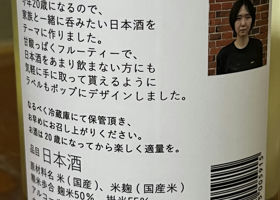 今年20歳になるので、
家族と一緒に呑みたい日本酒を
テーマに作りました。
甘酸っぱくフルーティーで、
日本酒をあまり飲まない方にも
気軽に手に取って貰えるように
ラベルもポップにデザインしました。
なるべく冷蔵庫にて保管頂き、
お早めにお召し上がりください。
お酒は20歳になってから楽しく適量を。
品目 日本酒
原材料名 米(国産)、米麹(国産米)
精米歩合 麹米50% 掛米55%
アルコール